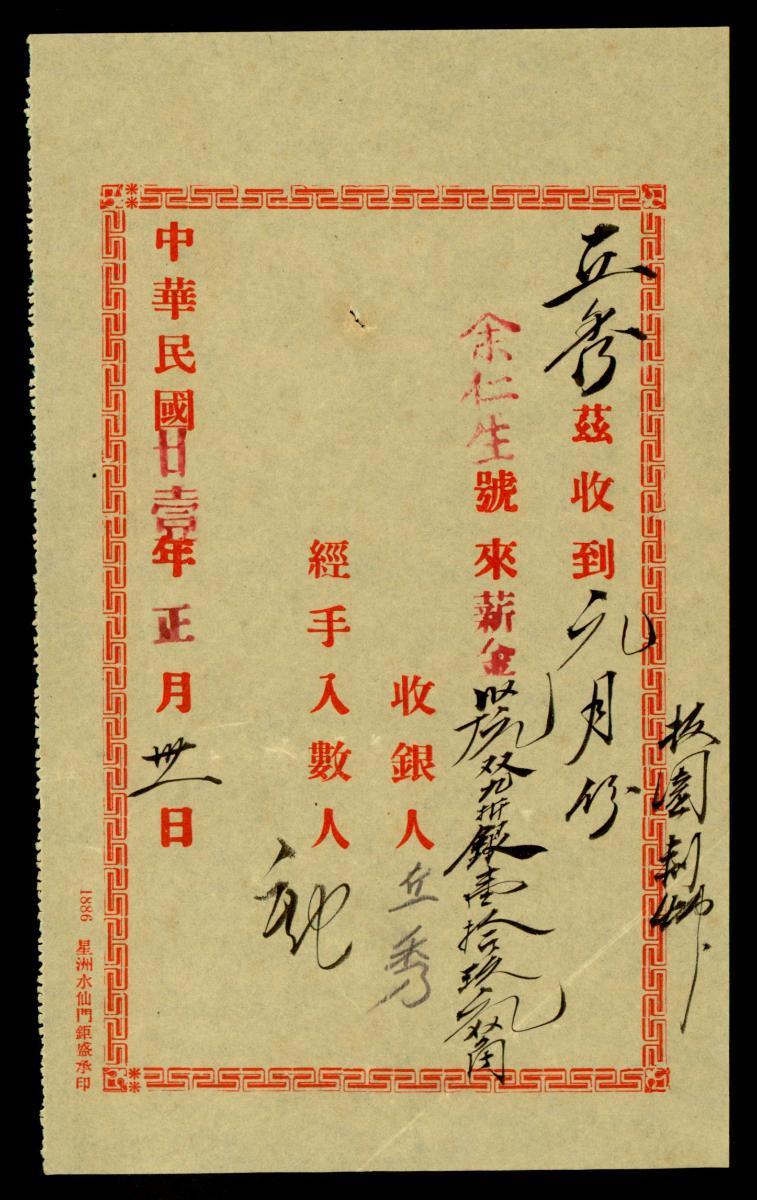 板園制艸
丘秀茲收到元月份
余仁生號來薪金 双九折銀壹拾玖元双角
收銀人丘秀
經手入數人
中華民國廿壹年正月卅一日
1886 星洲水仙門鉅盛承印